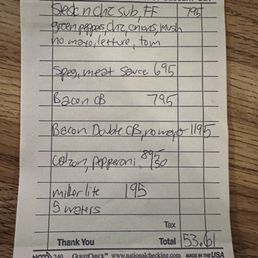 Steak n chz sub, FF 795
green peppers, chz, onions, mush
no mayo, lettuce, tom
Spag, meat sauce 695
Bacon CB 795
Bacon Double CB, no mayo 1195
Calzon, pepperoni 895
150
miller lite 195
5 waters
Tax
Thank You Total 53.61
240 www.nationalchecking.com MADE IN THE USA